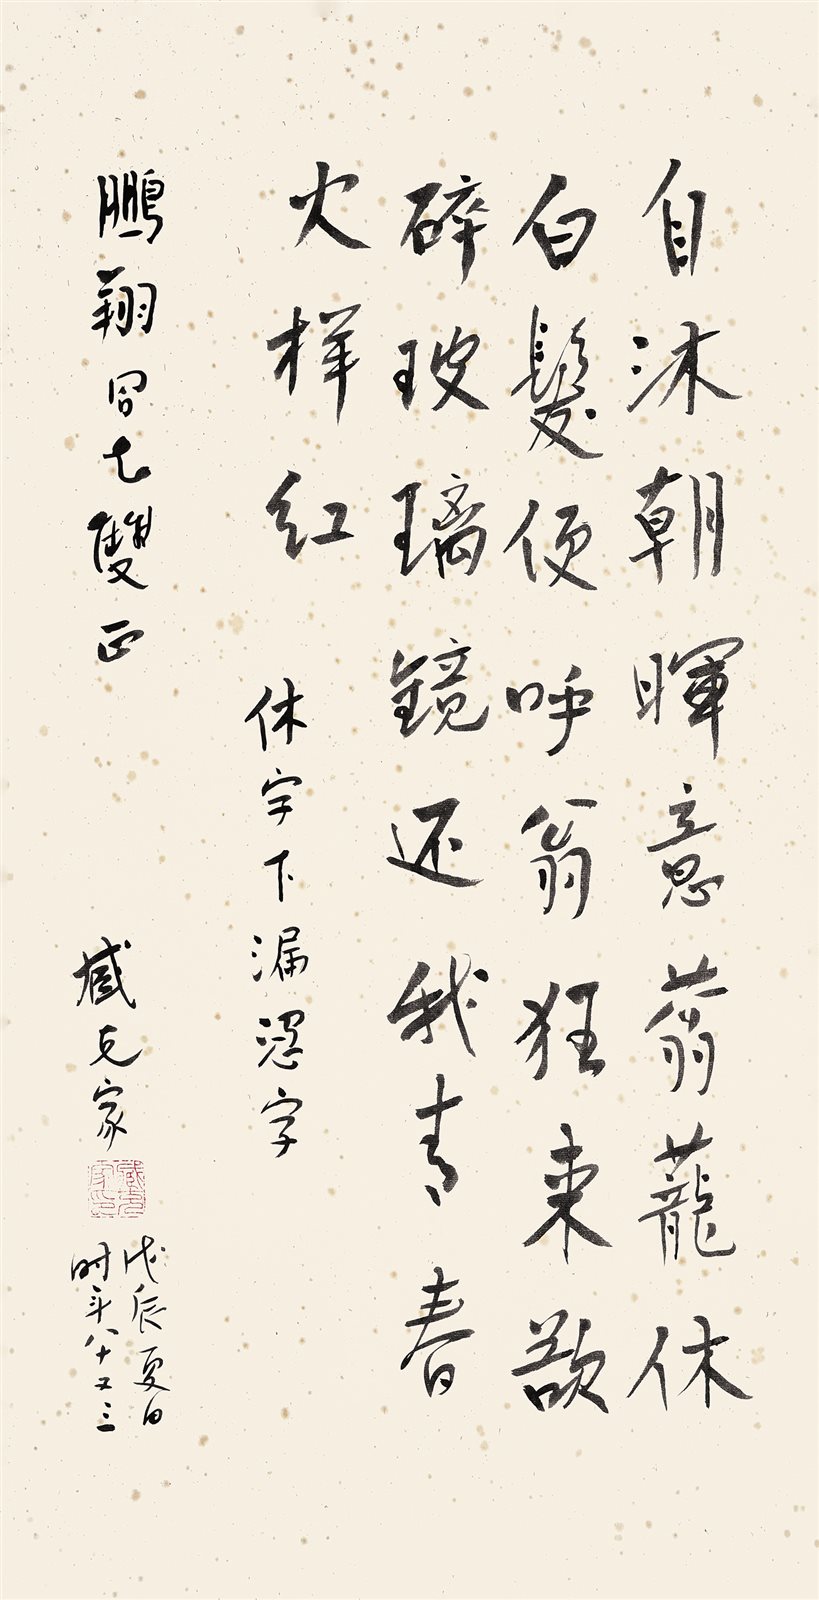 自沐朝暉意蓊蘢休
白髮便呼翁狂来欲
碎玻璃镜还我青春
火样红
休字下漏憑字
鵬翔同志雙正
臧克家
戊辰夏日
时年八十又三
臧克家印